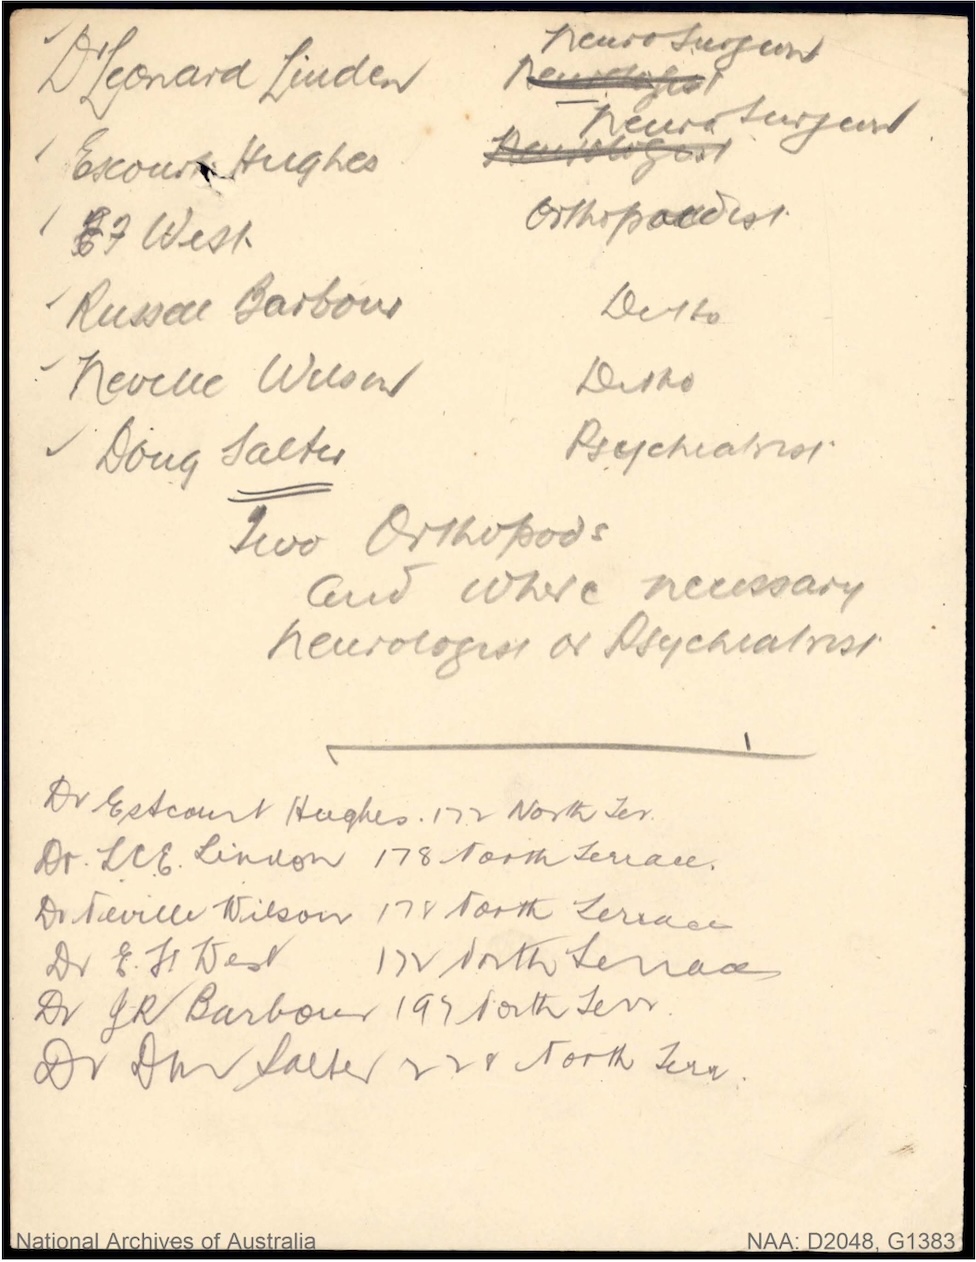 Neuro Surgeon
✓ Dr Leonard Linden Neurologist
Neuro Surgeon
✓ Escourt Hughes Neurologist
✓ EF West Orthopaedist
✓ Russell Barbour Ditto
✓ Neville Wilson Ditto
✓ Doug Salter Psychiatrist
Two Orthopods
and where necessary
Neurologist or Psychiatrist
Dr Estcourt Hughes. 172 North Ter.
Dr. LCE. Lindon 178 North Terrace.
Dr Neville Wilson 178 North Terrace
Dr E. F West 172 North Terrace
Dr JR Barbour 197 North Terr.
Dr DW Salter 228 North Terr.
National Archives of Australia NAA: D2048, G1383